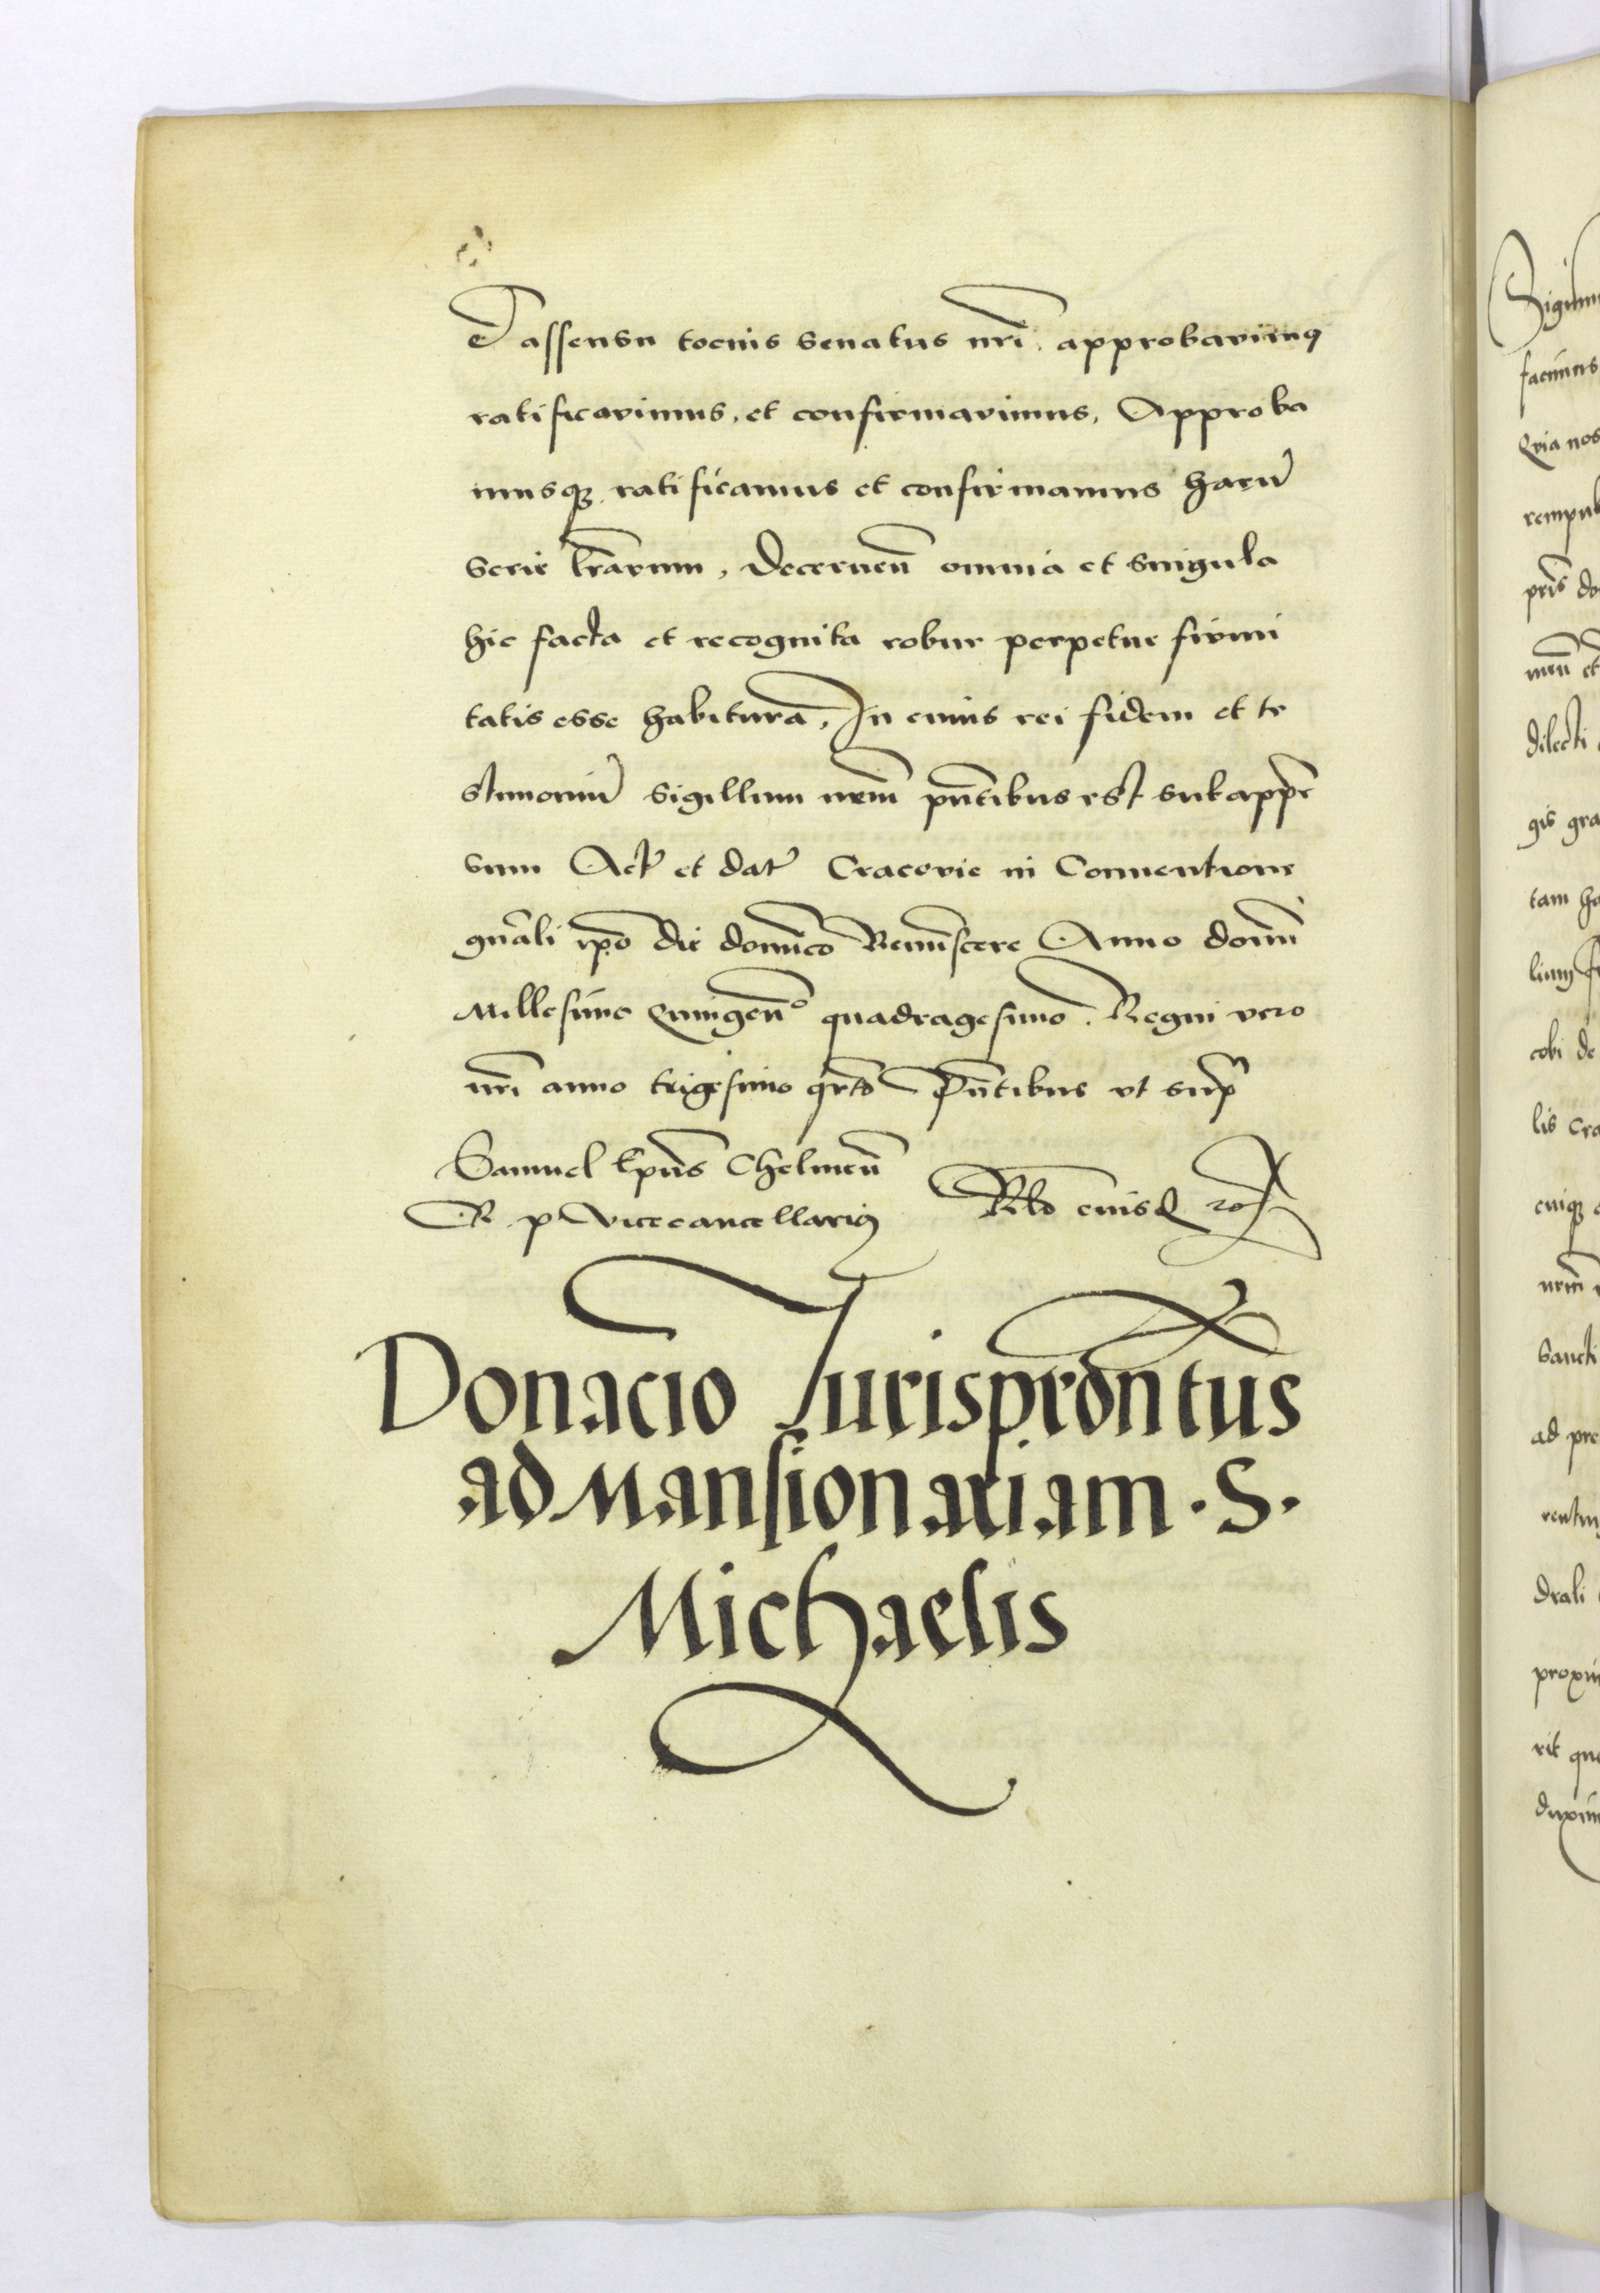 Et assensu tocius senatus nri approbavimꝰ
ratificavimus, et confirmavimus, Approba
musqꝫ ratificamus et confirmamus harũ
serie lrarum, Decerneñ omnia et singula
hic facta et recognita robur perpetue firmi
tatis esse habitura, In cuius rei fidem et te
stimoniũ sigillum nrm pñtibus est subappẽ
sum Act et dat Cracovie in Conventione
gnãli ipo die domĩco Reminiscere Anno domĩ
Millesimo quingeñº quadragesimo. Regni vero
nri anno trigesimo qrto Pñtibus ut supª
Samuel Epũs Chelmeñ
R P Vicecancellariꝰ
Rlo eiusd
Donacio Jurisprõntus
ad Mansionariam · S ·
Michaelis
Sigism
facimus
Qvia nos
rempub
pris do
meũ et
dilecti
gis gra
tam ha
lium
cobi de
lis Cra
cuiqꝫ
nrm
Sancti
ad pre
drali
proxi
rit que
duxim